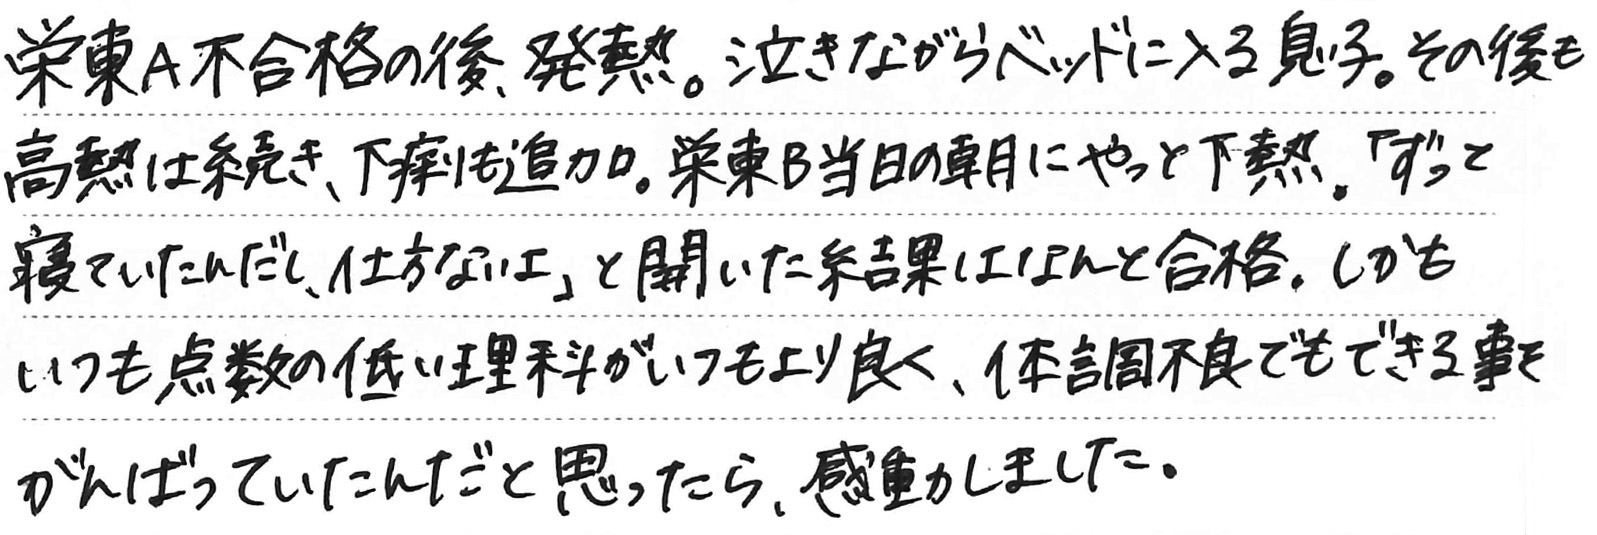 栄東A不合格の後、発熱。泣きながらベッドに入る息子。その後も
高熱は続き、下痢も追加。栄東B当日の朝にやっと下熱。「ずっと
寝ていたんだし、仕方ないよ」と開いた結果はなんと合格。しかも
いつも点数の低い理科がいつもより良く、体調不良でもできる事を
がんばっていたんだと思ったら、感動しました。